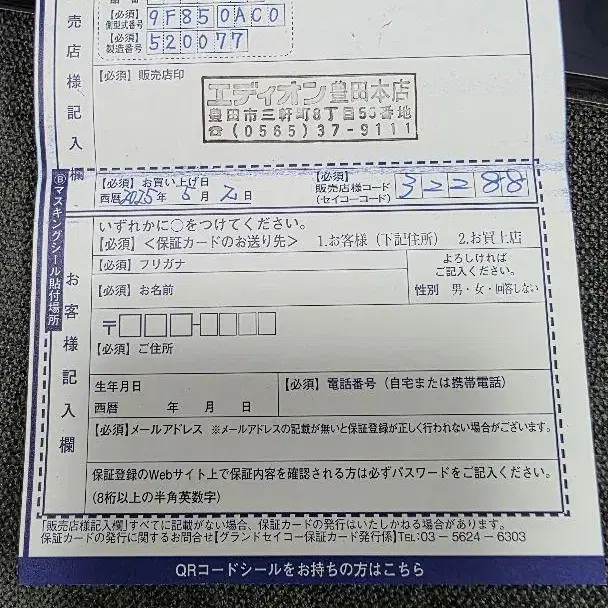 販売店様記入欄
【必須】側型式番号 9F850AC0
【必須】製造番号 520077
【必須】販売店印
エディオン豊田本店
豊田市三軒町8丁目55番地
☎(0565)37-9111
【必須】お買い上げ日
西暦2025年 5月 2日
【必須】販売店様コード(セイコーコード) 32288
Ⓑマスキングシール貼付場所
お客様記入欄
いずれかに○をつけてください。
【必須】<保証カードのお送り先> 1.お客様(下記住所) 2.お買上店
【必須】フリガナ
【必須】お名前
よろしければ
ご記入ください。
性別 男・女・回答しない
〒
【必須】ご住所
生年月日
西暦 年 月 日
【必須】電話番号(自宅または携帯電話)
【必須】メールアドレス ※メールアドレスの記載が無いと保証登録が正しく行われない場合がございます。
保証登録のWebサイト上で保証内容を確認される方は必ずパスワードをご記入ください。
(8桁以上の半角英数字)
「販売店様記入欄」すべてに記載がない場合、保証カードの発行はいたしかねる場合があります。
保証カードの発行に関するお問合せ【グランドセイコー保証カード発行係】TEL:03-5624-6303
QRコードシールをお持ちの方はこちら